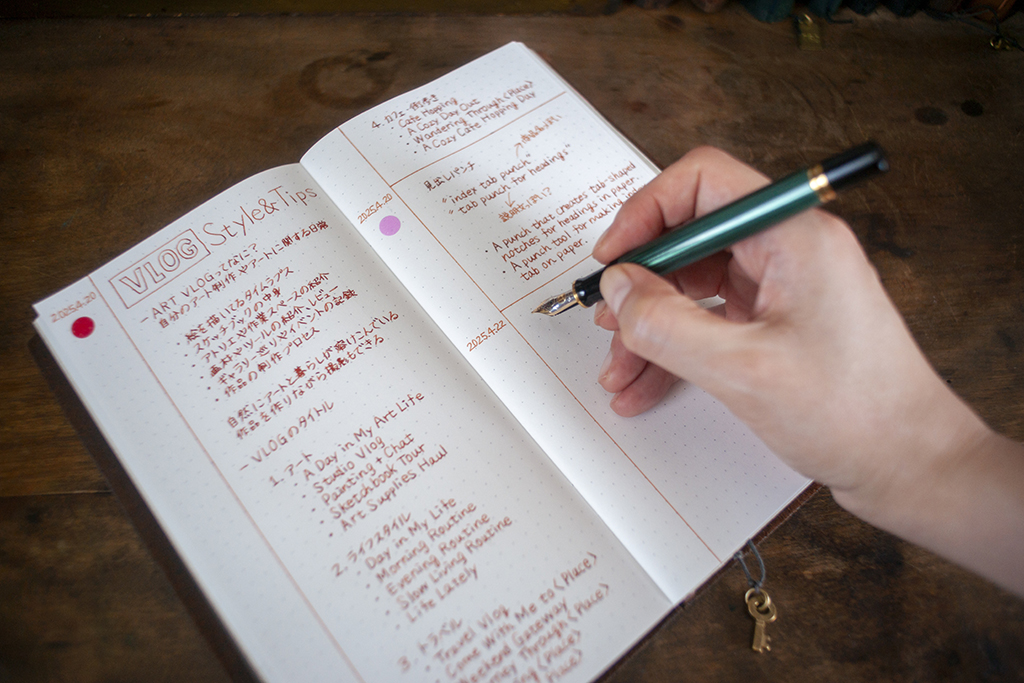 2025.4.20
VLOG Style&Tips
- ART VLOGってなに?
自分のアート制作やアートに関する日常
・絵を描いてるタイムラプス
・スケッチブックの中身
・アトリエや作業スペースの紹介
・画材やツールの紹介・レビュー
・ギャラリー巡りやイベントの記録
・作品の制作プロセス
自然にアートと暮らしが溶けこんでいる
作品を作りながら
- VLOGのタイトル
1. アート
・A Day in My Art Life
・Studio Vlog
・Painting + Chat
・Sketchbook Tour
・Art Supplies Haul
2. ライフスタイル
・Day in My Life
・Morning Routine
・Evening Routine
・Slow Living Routine
・Life Lately
3. トラベル
・Travel Vlog
・Come With Me to (Place)
・Weekend Getaway
Through (Place)
(Place)
4. カフェ・街歩き
・Cafe Hopping
・A Cozy Day Out
・Wandering Through (Place)
・A Cozy Cafe Hopping Day
2025.4.20
見出しパンチ
"index tab punch"
"tab punch for headings"
・A punch that creates tab-shaped
notches for headings in paper.
・A punch tool for making
tab on paper.
2025.4.22